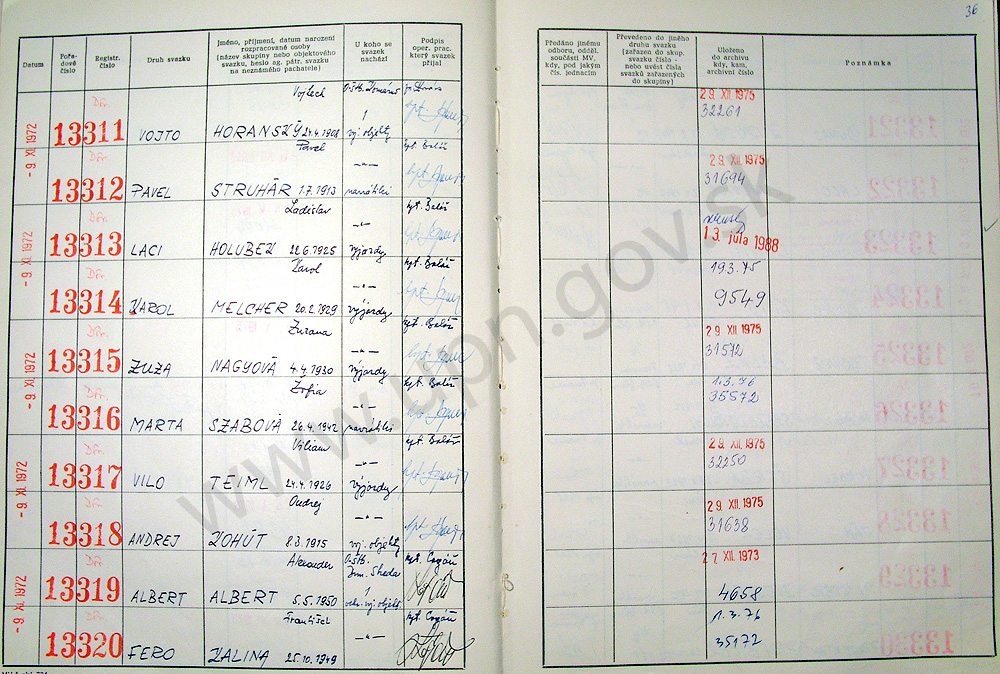 36
Datum
Pořadové číslo
Registr. číslo
Druh svazku
Jméno, příjmení, datum narození rozpracované osoby (název skupiny nebo objektového svazku, heslo ag. pátr. svazku na neznámého pachatele)
U koho se svazek nachází
Podpis oper. prac. který svazek přijal
Předáno jinému odboru, odděl. součásti MV, kdy, pod jakým čís. jednacím
Převedeno do jiného druhu svazku (zařazen do skup. číslo - nebo uvést čísla svazků zařazených do skupiny)
Uloženo do archivu kdy, kam, archivní číslo
Poznámka
- 9. XI. 1972
13311 VOJTO HORANSKÝ 24.4.1908 Vojtech
29. XII. 1975
32261
13312 PAVEL STRUHÁR 1.7.1913 Pavel
kpt. Baláž
29. XII. 1975
31694
- 9. XI. 1972
13313 LACI HOLUBEK 22.6.1925 Ladislav výjazdy
kpt. Baláž
13. júla 1988
13314 KAROL MELCHER 20.2.1929 Karol výjazdy
kpt. Baláž
193.75
9549
- 9. XI. 1972
13315 ZUZA NAGYOVÁ 4.4.1930 Zuzana výjazdy
kpt. Baláž
29. XII. 1975
31572
13316 MARTA SZABOVÁ 26.4.1942 Žofia
kpt. Baláž
1.3.76
35572
- 9. XI. 1972
13317 VILO TEIML 24.4.1926 Viliam výjazdy
kpt. Baláž
29. XII. 1975
32250
13318 ANDREJ KOHÚT 8.3.1915 Ondrej výj. objekty
29. XII. 1975
31638
- 9. XI. 1972
13319 ALBERT ALBERT 5.5.1950 Alexander
27. XII. 1973
4658
13320 FERO KALINA 25.10.1949 František
1.3.76
35172
www.upn.gov.sk